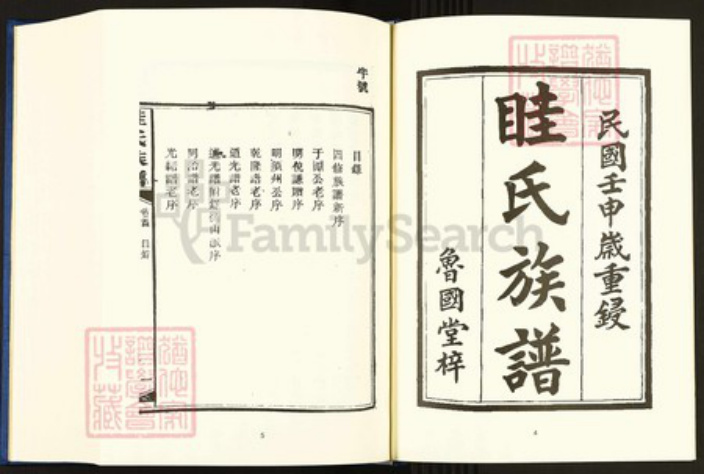 民國壬申歲重鋟
眭氏族譜
魯國堂梓
4
字號
目錄
四修族譜新序
于頴公老序
明倪謙贈序
明須州公序
乾隆譜老序
道光譜老序
同治譜老序
光緒譜老序
卷首 目錄
一
5
FamilySearch